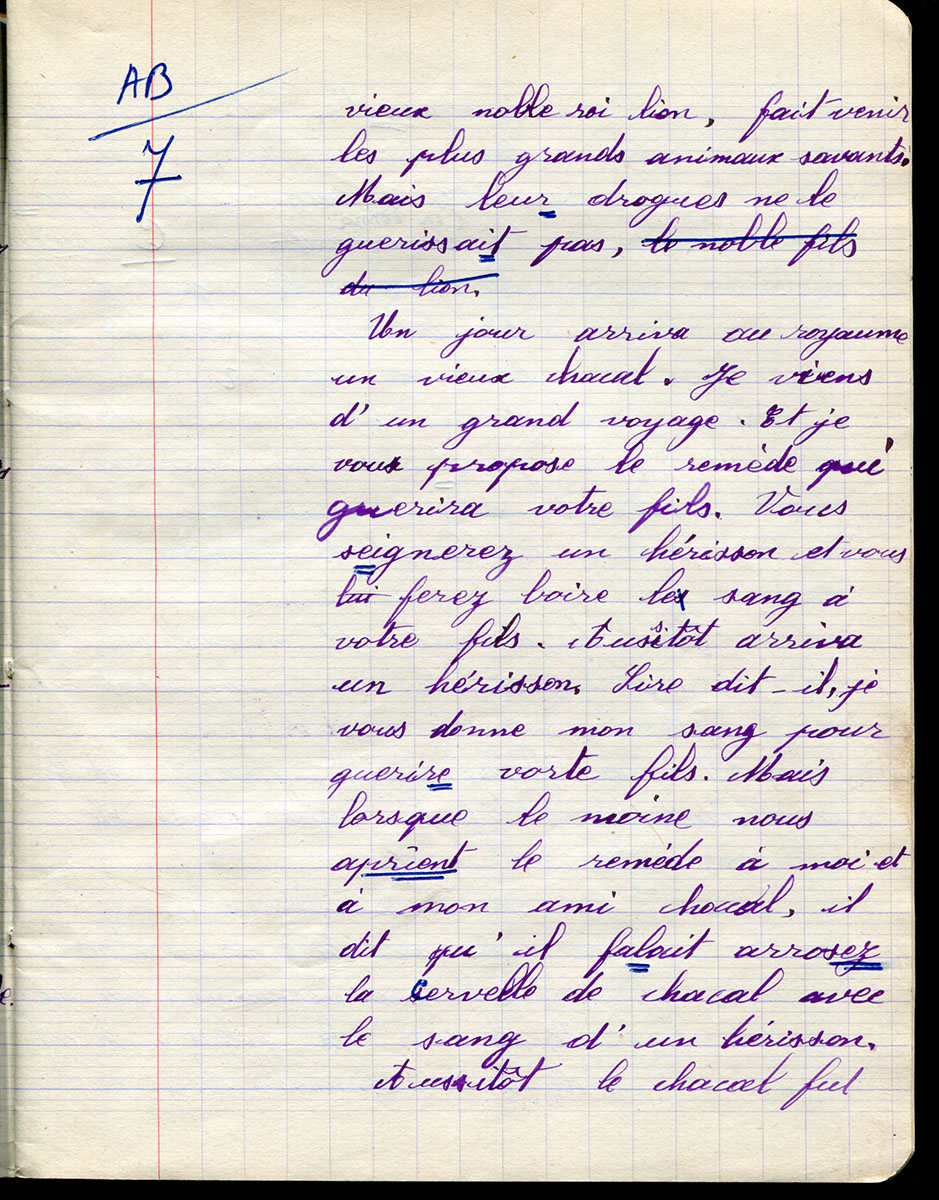 AB
7
vieux noble roi lion, fait venir
les plus grands animaux savants.
Mais leur drogues ne le
guerissait pas, le noble fils
du lion.
Un jour arriva au royaume
un vieux chacal. Je viens
d'un grand voyage. Et je
vous propose le remède qui
guerira votre fils. Vous
seignerez un hérisson et vous
lui ferez boire les sang à
votre fils. Aussitôt arriva
un hérisson. Sire dit-il, je
vous donne mon sang pour
guerire vorte fils. Mais
lorsque le moine nous
aprîent le remède à moi et
à mon ami chacal, il
dit qu'il falait arrosez
la cervelle de chacal avec
le sang d'un hérisson.
Aussitôt le chacal fut